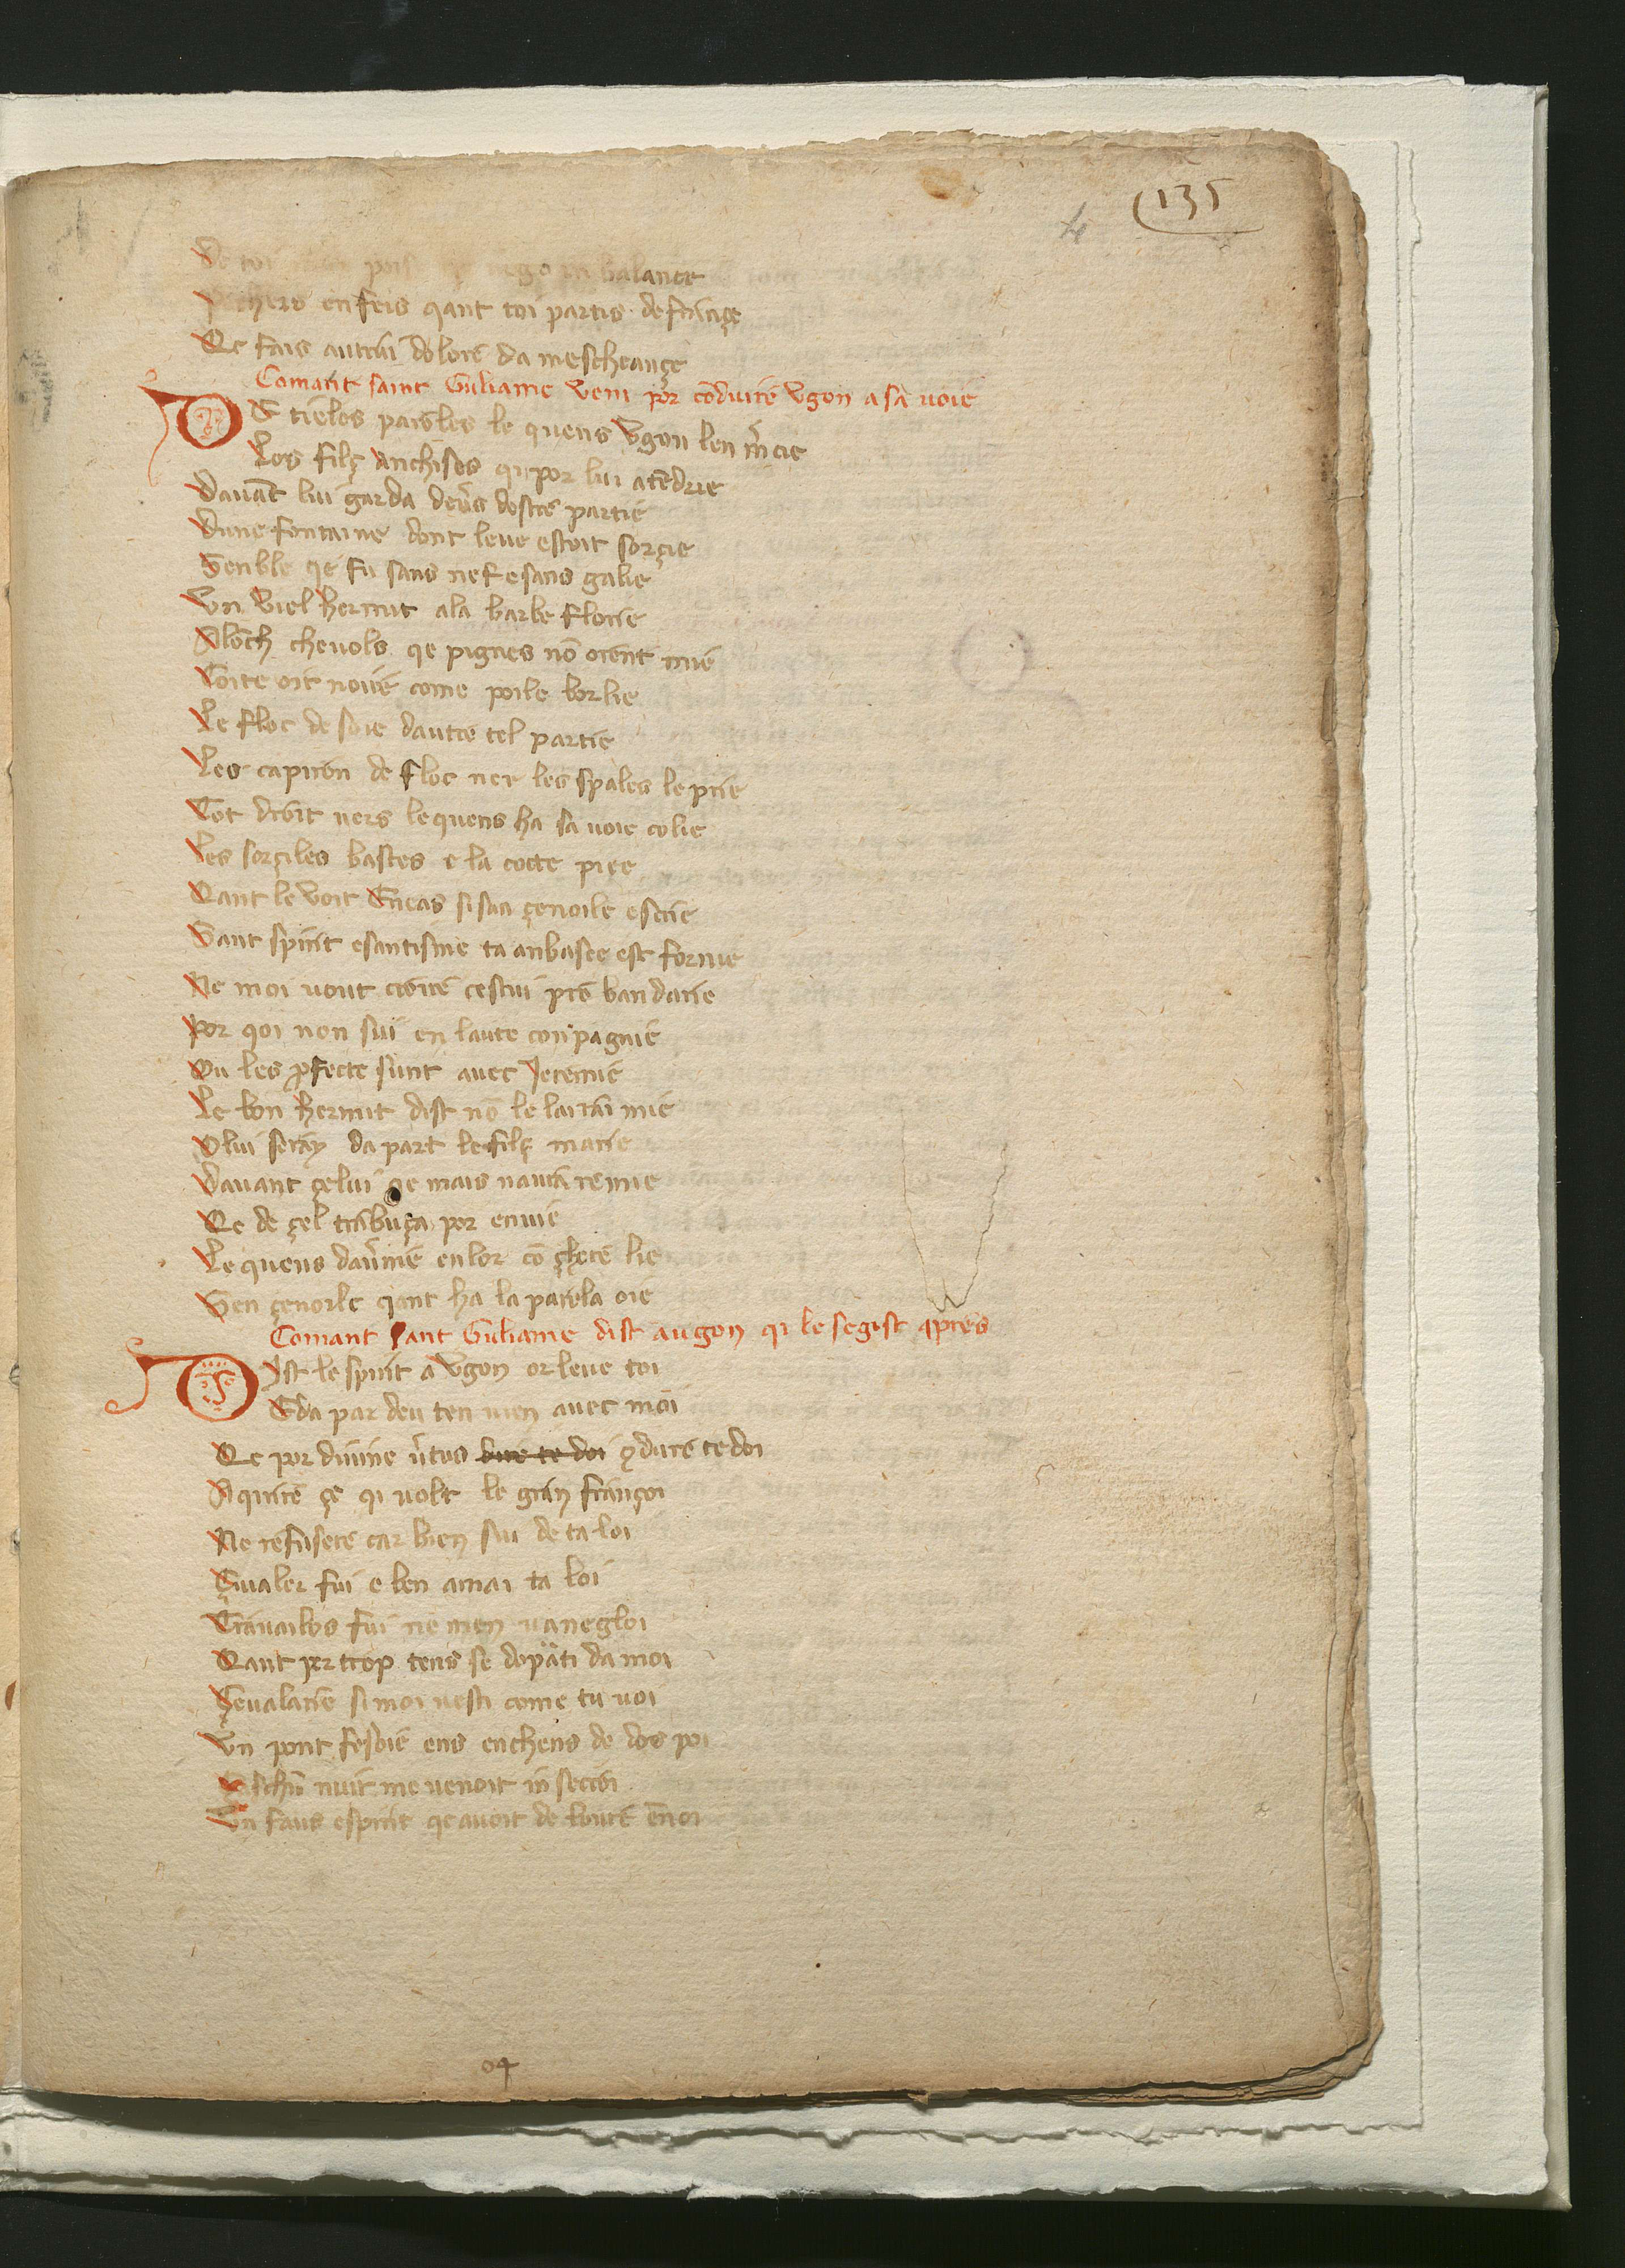 135
De toi balance
chers en feis qant toi partis de françe
Qe fais autrui dolore da mescheançe
Comant saint Guliame veni por cōduire Vgon a sa uoie
DE tieles paroles le quens Vgon len m̄cie
Les filç Anchises qi por lui atēdrie
Dauāt lui garda deu̾s destre partie
Dune fontaine dont leue estoit sorçie
Senble qe fu sans nef e sans galie
Vn viel hermit a la barbe florie
A lōch cheuols qe pignes nō orent mie
Coite oit noire come poile borlie
Le floc de soie dautre tel partie
Les capiron de floc ner les spales le prie
Tot droit uers le quens ha sa uoie colie
Les sorçiles bastes e la cocte piçe
Qant le voit Eneas si sen çenoile escrie
Sant spirit e santisme ta anbasee est fornie
Ne moi uout croire cestui pro bandarie
Por qoi non sui en laute conpagnie
Ou les ꝓfecte sunt auec Jeremie
Le bon hermit dist nō le lairai mie
O lui seray da part le filç marie
Dauant çelui qe mais naura remie
Qe de çel trabuça por enuie
Le quens dau̾nie en lor cō çhere lie
Sen çenoile qant ha la parola oie
Comant sant Guliame dist a ugon qi le segist apres
Dist le spirit a Vgon or leue toi
E da par deu ten uien auec moi
Qe por diuine u̾tus duire te doi ꝯdure te doi
A quire çe qi uolt le gran françoi
Ne refusere car bien sui de ta loi
Çiualer fui e ben amai ta loi
Trauailos fui ne men uanegloi
Qant per trop tens se departi da moi
Çeualarie si moi uesti come tu uoi
Vn pont fesoie ens enchens de dos poi
Çaschū nuit me uenoit in secroi
Un faus espirit qe auoit de loure ēnoi
04